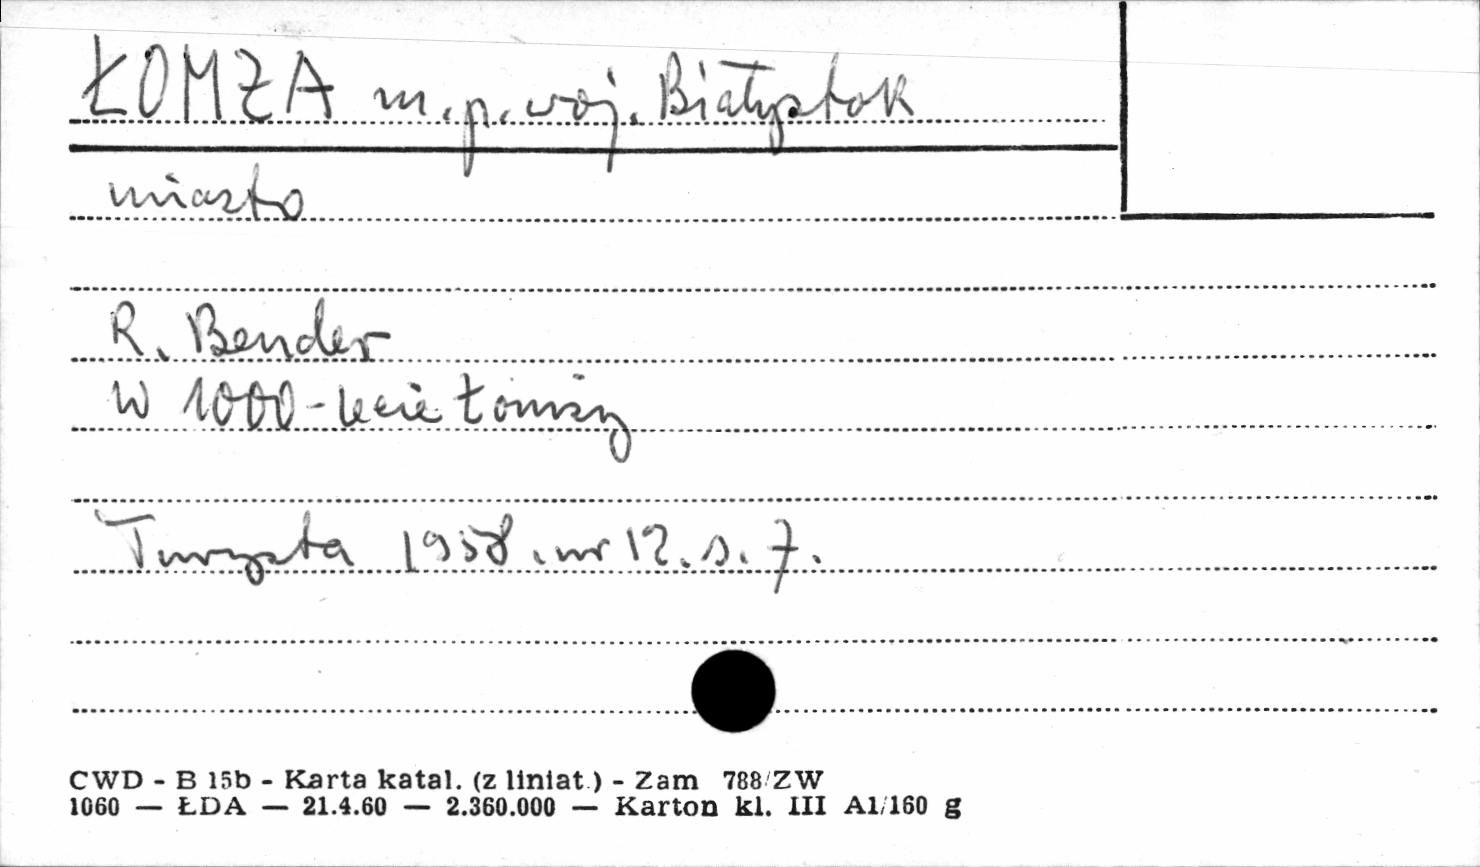 ŁOMŻA m. p. woj. Białystok
miasto
R. Bender
W 1000-lecie Łomży
Turysta 1958. nr 12. s. 7.
CWD - B 15b - Karta katal. (z liniat.) - Zam 788/ZW
1060 — ŁDA — 21.4.60 — 2.360.000 — Karton kl. III A1/160 g